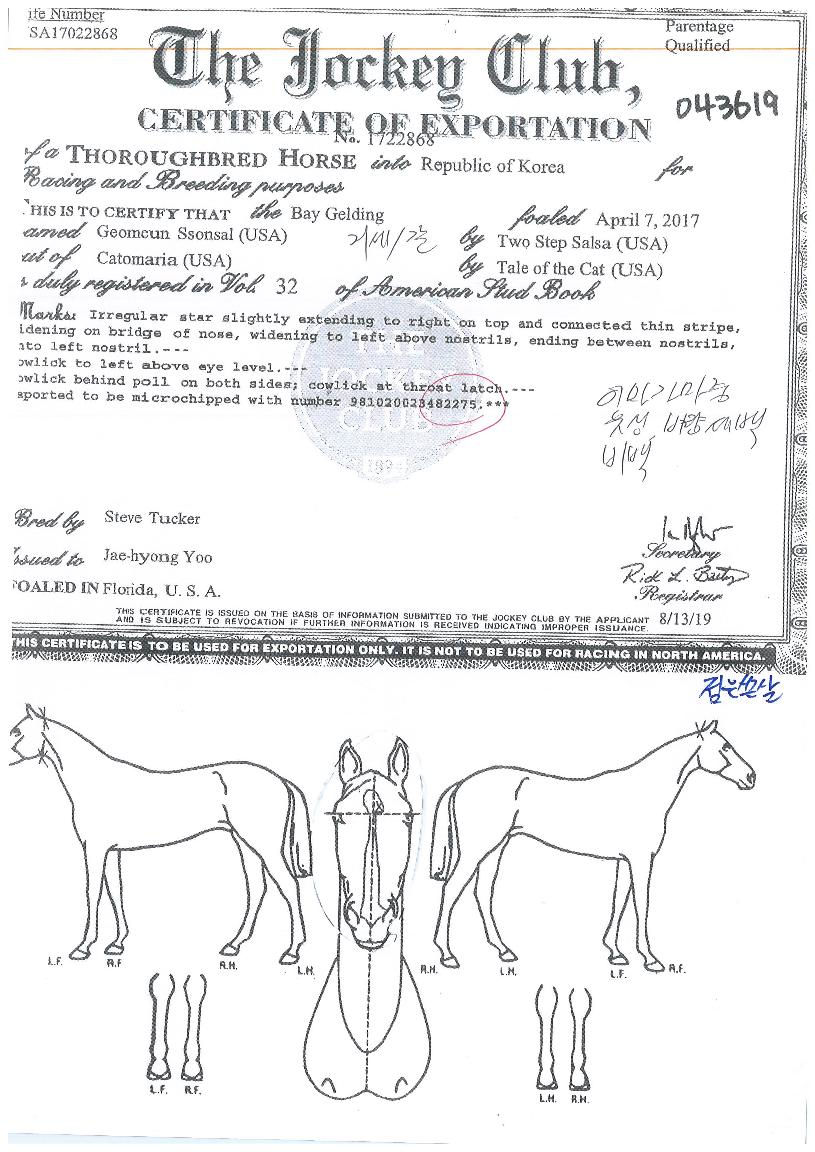 ife Number
SA17022868
Parentage
Qualified
The Jockey Club,
043619
CERTIFICATE OF EXPORTATION
No. 1722868
of a THOROUGHBRED HORSE into Republic of Korea for
Racing and Breeding purposes
THIS IS TO CERTIFY THAT the Bay Gelding foaled April 7, 2017
amed Geomeun Ssonsal (USA) by Two Step Salsa (USA)
ut of Catomaria (USA) by Tale of the Cat (USA)
s duly registered in Vol. 32 of American Stud Book
Marks: Irregular star slightly extending to right on top and connected thin stripe,
idening on bridge of nose, widening to left above nostrils, ending between nostrils,
nto left nostril.---
owlick to left above eye level.---
owlick behind poll on both sides; cowlick at throat latch.---
eported to be microchipped with number 981020023482275.***
THE
JOCKEY
CLUB
1894
비백
Bred by Steve Tucker
Issued to Jae-hyong Yoo
Secretary
Registrar
FOALED IN Florida, U. S. A.
THIS CERTIFICATE IS ISSUED ON THE BASIS OF INFORMATION SUBMITTED TO THE JOCKEY CLUB BY THE APPLICANT
AND IS SUBJECT TO REVOCATION IF FURTHER INFORMATION IS RECEIVED INDICATING IMPROPER ISSUANCE. 8/13/19
THIS CERTIFICATE IS TO BE USED FOR EXPORTATION ONLY. IT IS NOT TO BE USED FOR RACING IN NORTH AMERICA.
검은쏜살
L.F. R.F R.H. L.H. R.H. L.H. L.F. R.F.
L.F. R.F. L.H. R.H.